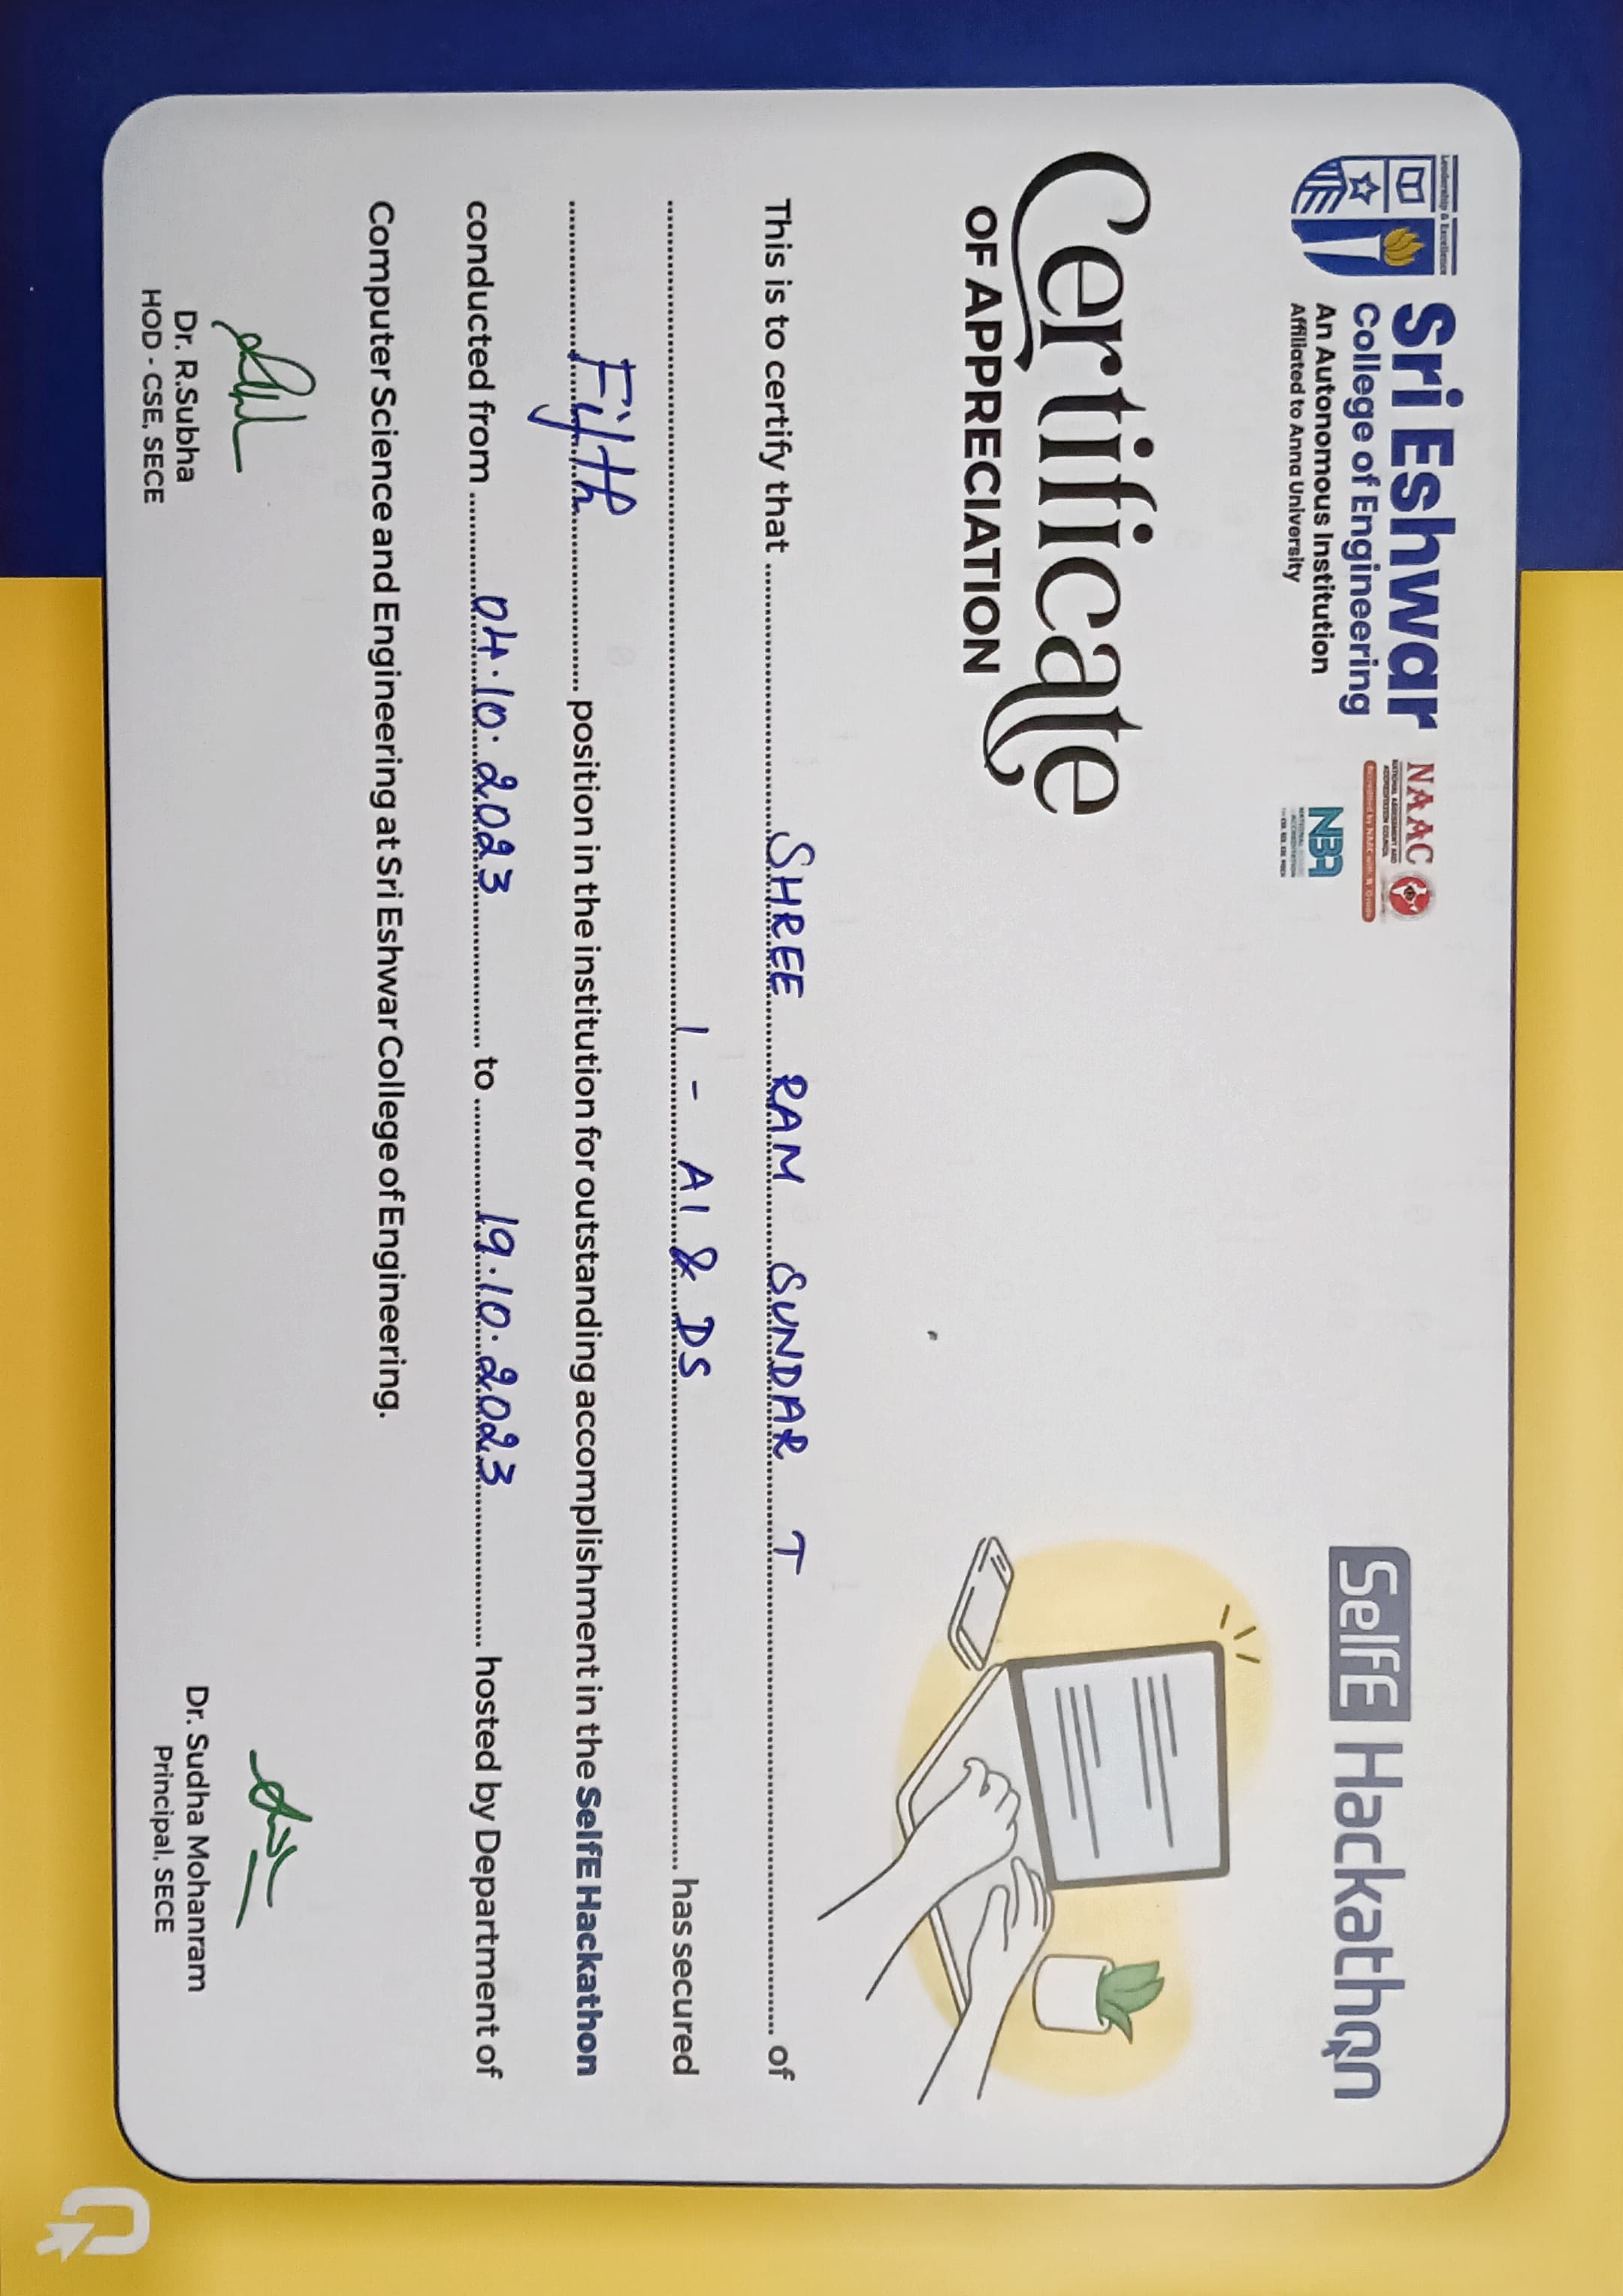 Leadership & Excellence
Sri Eshwar
College of Engineering
An Autonomous Institution
Affiliated to Anna University
NAAC
NATIONAL ASSESSMENT AND
ACCREDITATION COUNCIL
Accredited by NAAC with
NBA
NATIONAL
ACCREDITATION
SelfE Hackathon
Certificate
OF APPRECIATION
This is to certify that SHREE RAM SUNDAR T of
I - AI & DS has secured
Fifth position in the institution for outstanding accomplishment in the SelfE Hackathon
conducted from 04.10.2023 to 19.10.2023 hosted by Department of
Computer Science and Engineering at Sri Eshwar College of Engineering.
Dr. R.Subha
HOD - CSE, SECE
Dr. Sudha Mohanram
Principal, SECE